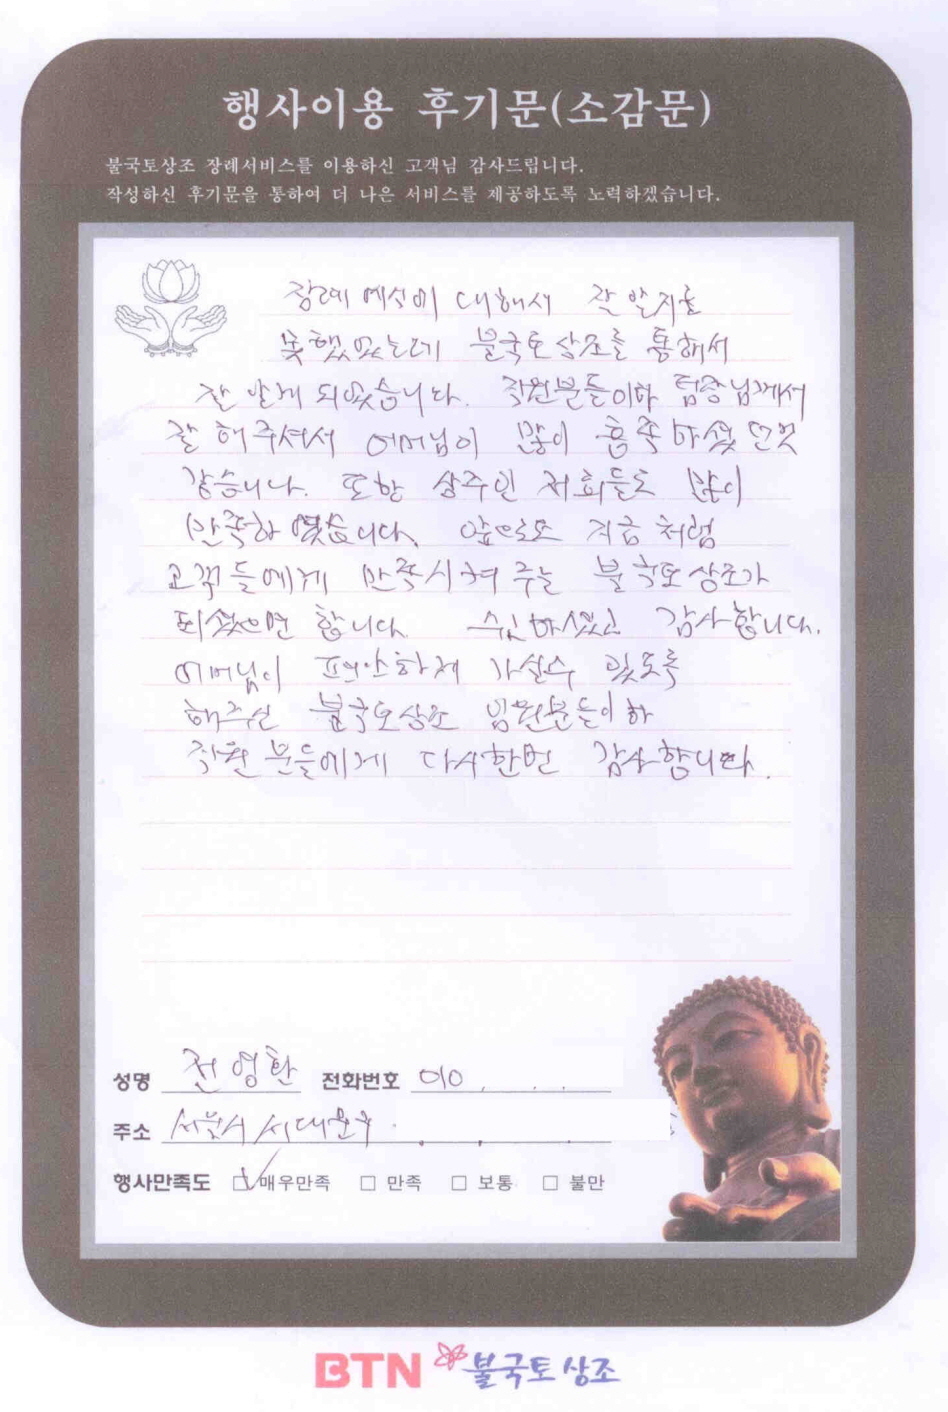 행사이용 후기문(소감문)
불국토상조 장례서비스를 이용하신 고객님 감사드립니다.
작성하신 후기문을 통하여 더 나은 서비스를 제공하도록 노력하겠습니다.
장례 예식에 대해서 잘 알지를
못했었는데 불국토상조를 통해서
잘 알게 되었습니다. 직원분들이하 팀장님께서
잘 해주셔서 어머님이 많이 흡족하셨던것
같습니다. 또한 상주인 저희들도 많이
만족하였습니다. 앞으로도 지금처럼
고객들에게 만족시켜 주는 불국토상조가
되셨으면 합니다. 수고하셨고 감사합니다.
어머님이 편안하게 가실수 있도록
해주신 불국토상조 임원분들이하
직원분들에게 다시한번 감사합니다.
성명 전영환 전화번호 010
주소 서울시 서대문구
행사만족도 □ 매우만족 □ 만족 □ 보통 □ 불만
BTN 불국토상조